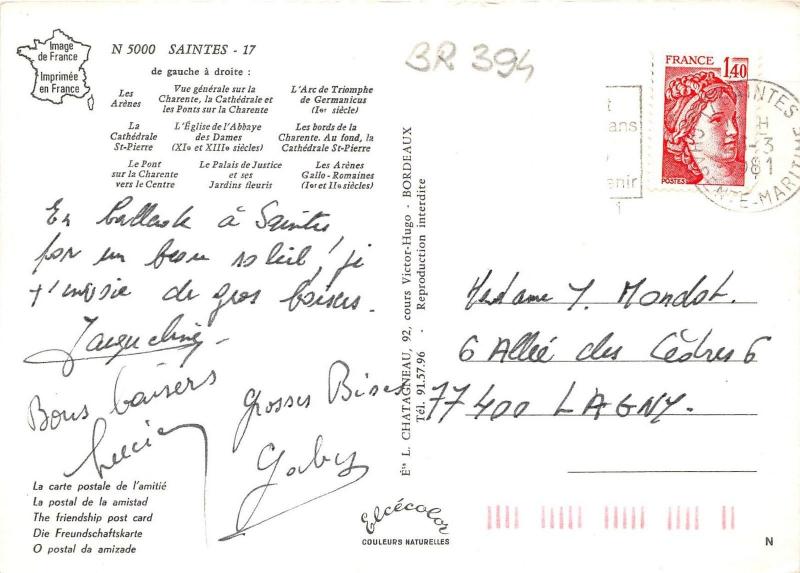 Image
de France
Imprimée
en France
N 5000 SAINTES - 17
de gauche à droite :
Les
Arènes
Vue générale sur la
Charente, la Cathédrale et
les Ponts sur la Charente
L'Arc de Triomphe
de Germanicus
(Ier siècle)
La
Cathédrale
St-Pierre
L'Église de l'Abbaye
des Dames
(XIe et XIIIe siècles)
Les bords de la
Charente. Au fond, la
Cathédrale St-Pierre
Le Pont
sur la Charente
vers le Centre
Le Palais de Justice
et ses
Jardins fleuris
Les Arènes
Gallo-Romaines
(Ier et IIe siècles)
En ballade à Saintes
par un beau soleil, je
t'envoie de gros baisers.
Jacqueline
Bons baisers
Lucien
Grosses Bises
Gaby
La carte postale de l'amitié
La postal de la amistad
The friendship post card
Die Freundschaftskarte
O postal da amizade
Éts L. CHATAGNEAU, 92, cours Victor-Hugo - BORDEAUX
Tél. 91.57.96 - Reproduction interdite
Elcécolor
COULEURS NATURELLES
BR 394
FRANCE
1,40
POSTES
SAINTES
CHARENTE-MARITIME
1981
Madame Y. Mondot.
6 Allée des Cèdres 6
77400 LAGNY.
N